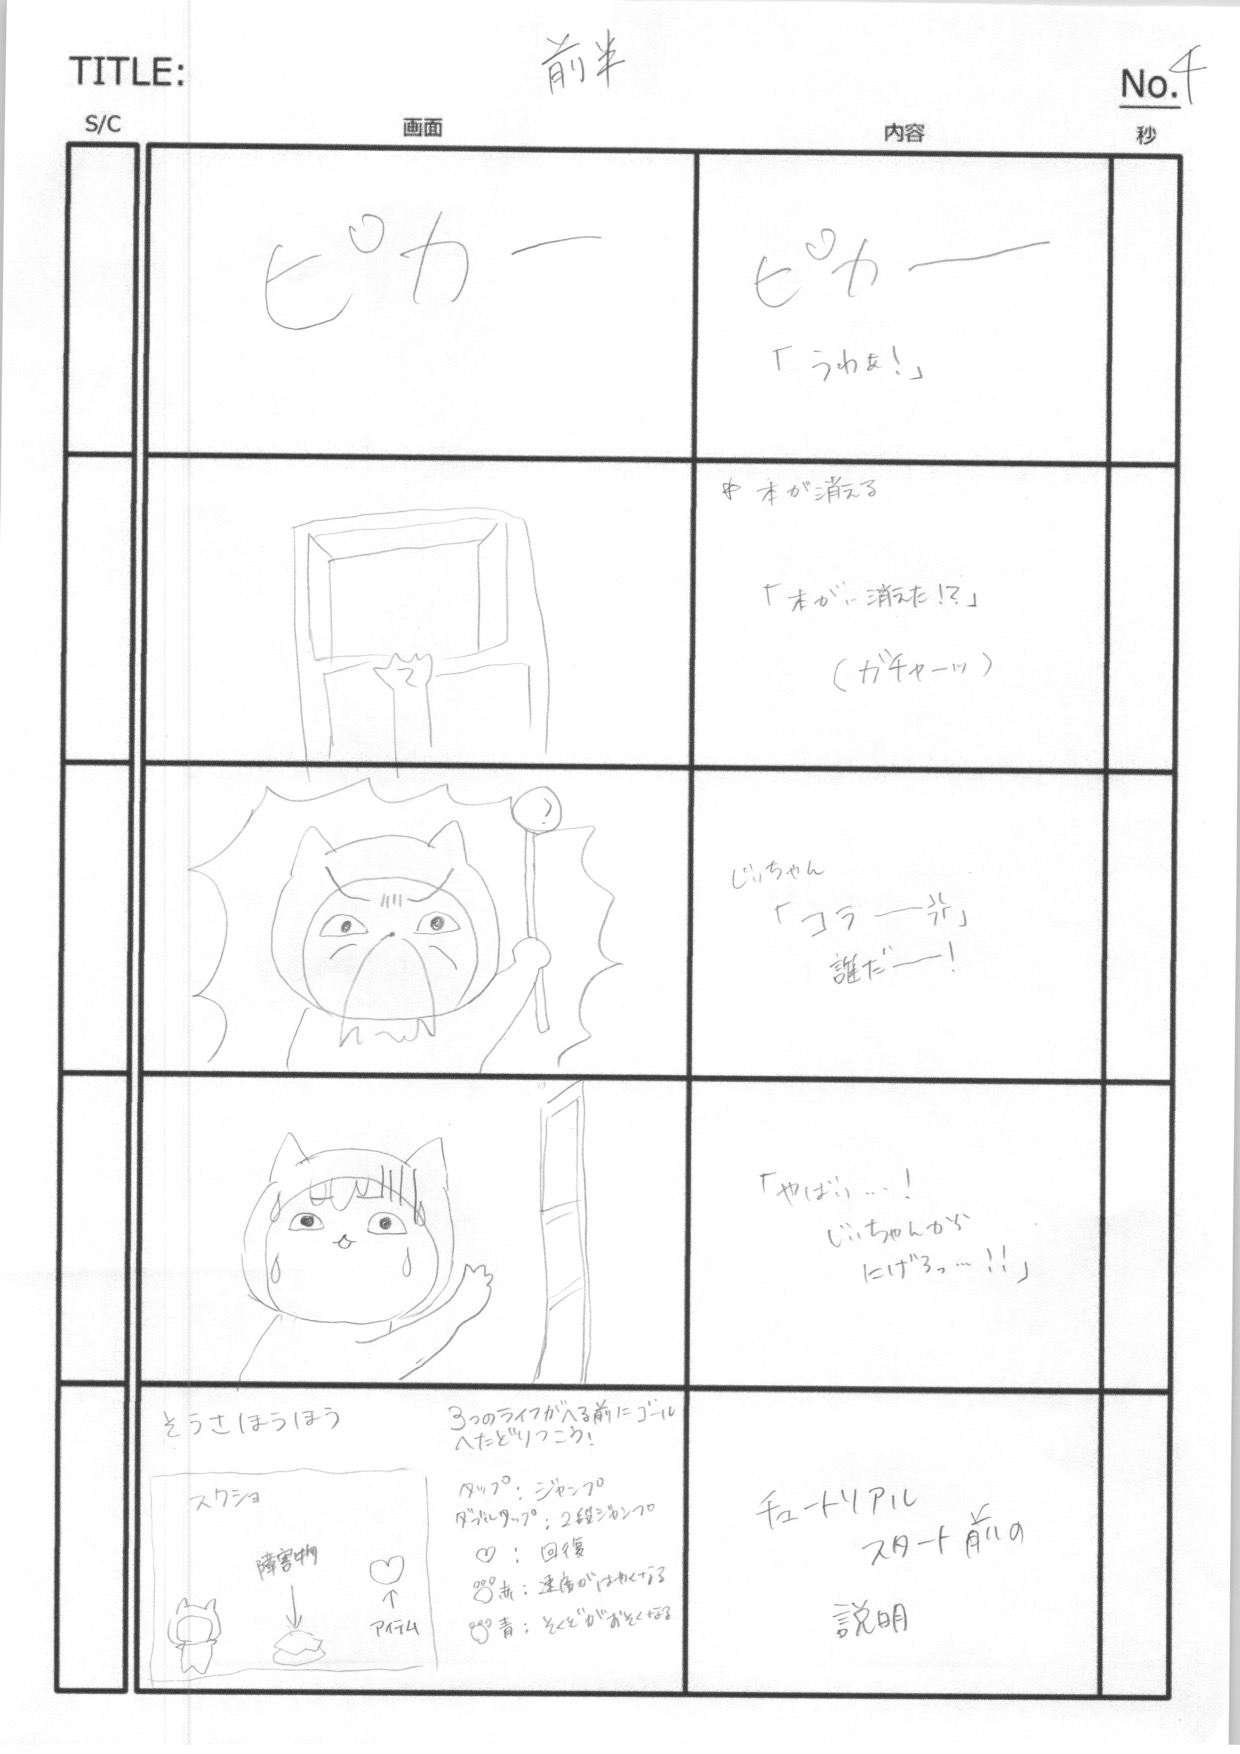 TITLE:
前半
No.4
S/C
画面
内容
秒
ピカー
ピカー
「うわぁ!」
本が消える
「本が… 消えた!?」
(ガチャーッ)
じいちゃん
「コラー」
誰だー!
「やばい…!
じいちゃんから
にげろっ…!!」
そうさほうほう
スクショ
障害物
アイテム
3つのライフがへる前にゴール
へたどりつこう!
タップ:ジャンプ
ダブルタップ:2段ジャンプ
♡:回復
赤:速度がはやくなる
青:そくどがおそくなる
チュートリアル
スタート前の
説明